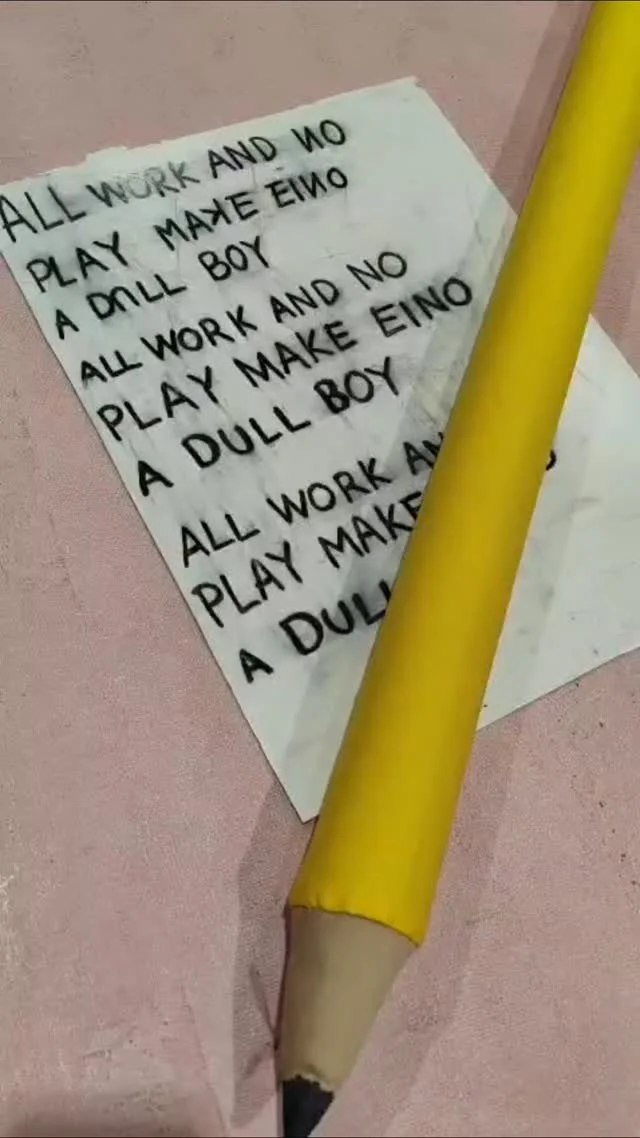 ALL WORK AND NO
PLAY MAKE EINO
A DULL BOY
ALL WORK AND NO
PLAY MAKE EINO
A DULL BOY
ALL WORK
PLAY MAKE
A DULL